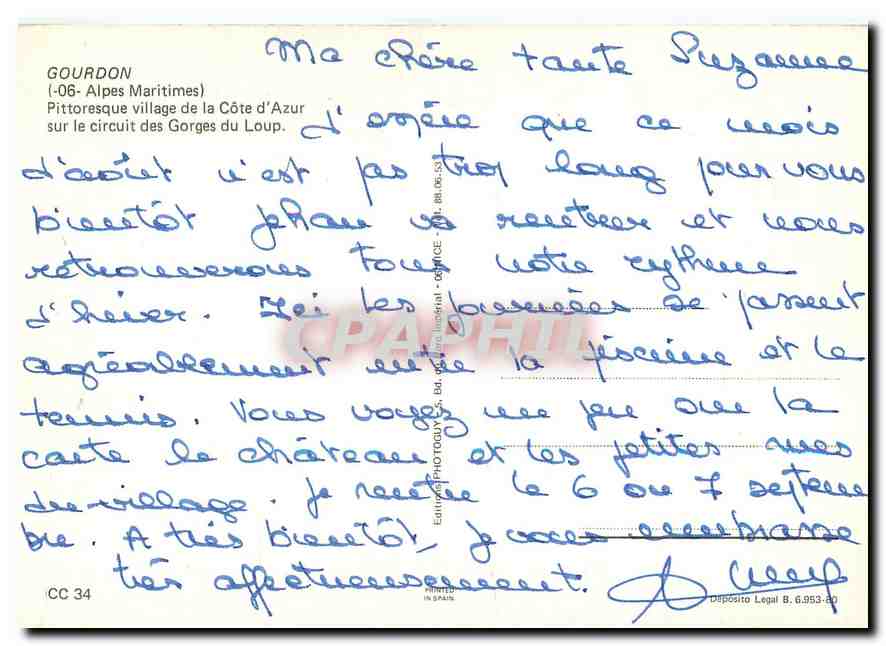 Ma chère tante Suzanne
GOURDON
(-06- Alpes Maritimes)
Pittoresque village de la Côte d'Azur
sur le circuit des Gorges du Loup.
J'espère que ce mois
d'août n'est pas trop long pour vous
bientôt Jehan va rentrer et nous
retrouverons tous notre rythme
d'hiver. Ici les journées se passent
agréablement entre la piscine et le
tennis. Vous voyez un peu sur la
carte le château et les petites rues
du village. Je rentre le 6 ou 7 septem
bre. A très bientôt, je vous embrasse
très affectueusement.
CC 34
Editions PHOTOGUY - 5, Bd. du Parc Impérial - 06 NICE - Tél. 88.06.53
CPAPHIL
PRINTED
IN SPAIN
Depósito Legal B. 6.953-80